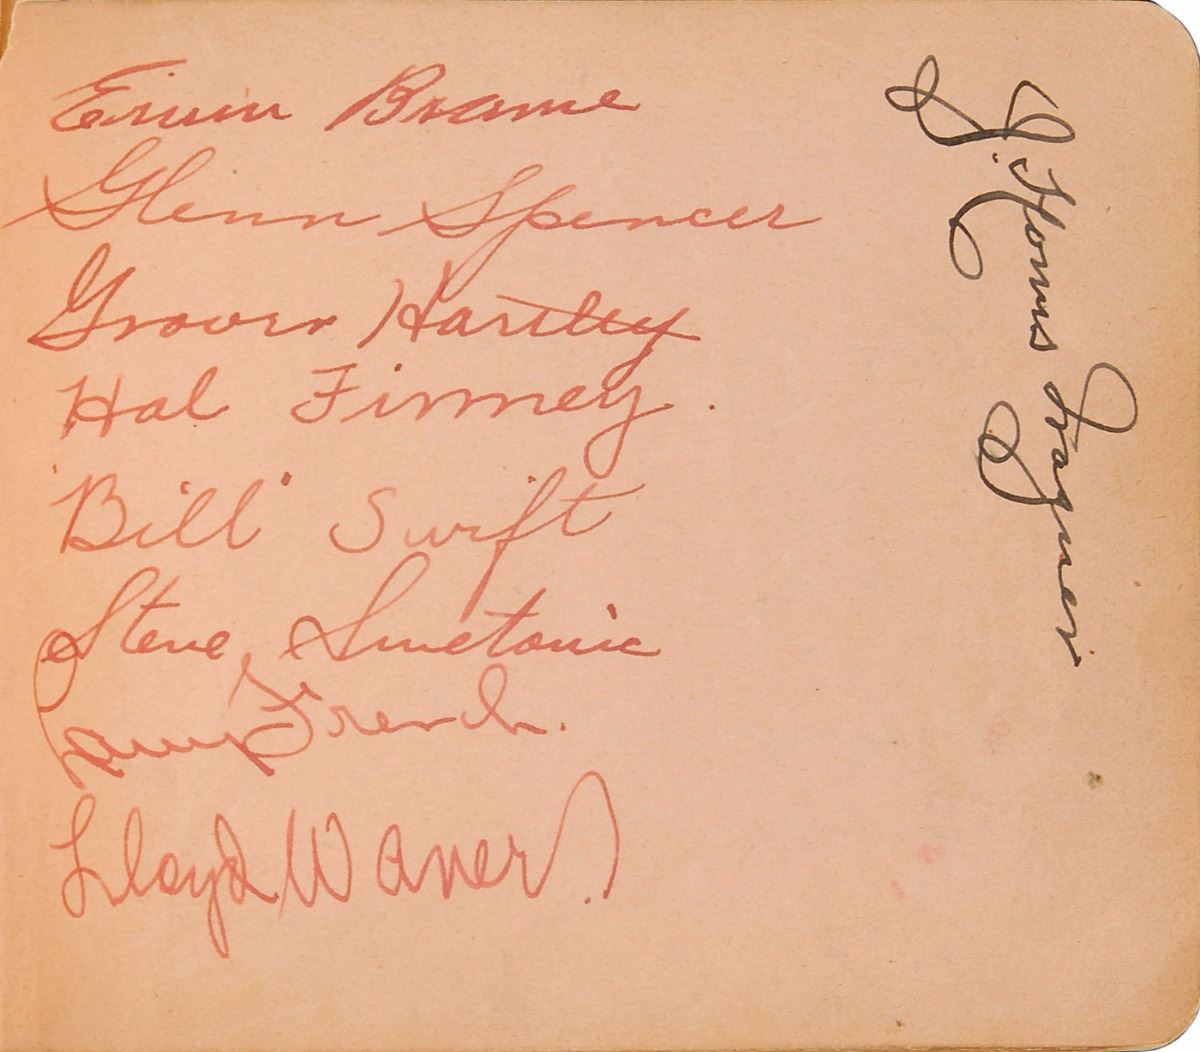 Ervin Brame
Glenn Spencer
Grover Hartley
Hal Finney.
"Bill" Swift
Steve Swetonic
Larry French.
Lloyd Waner
J. Honus Wagner